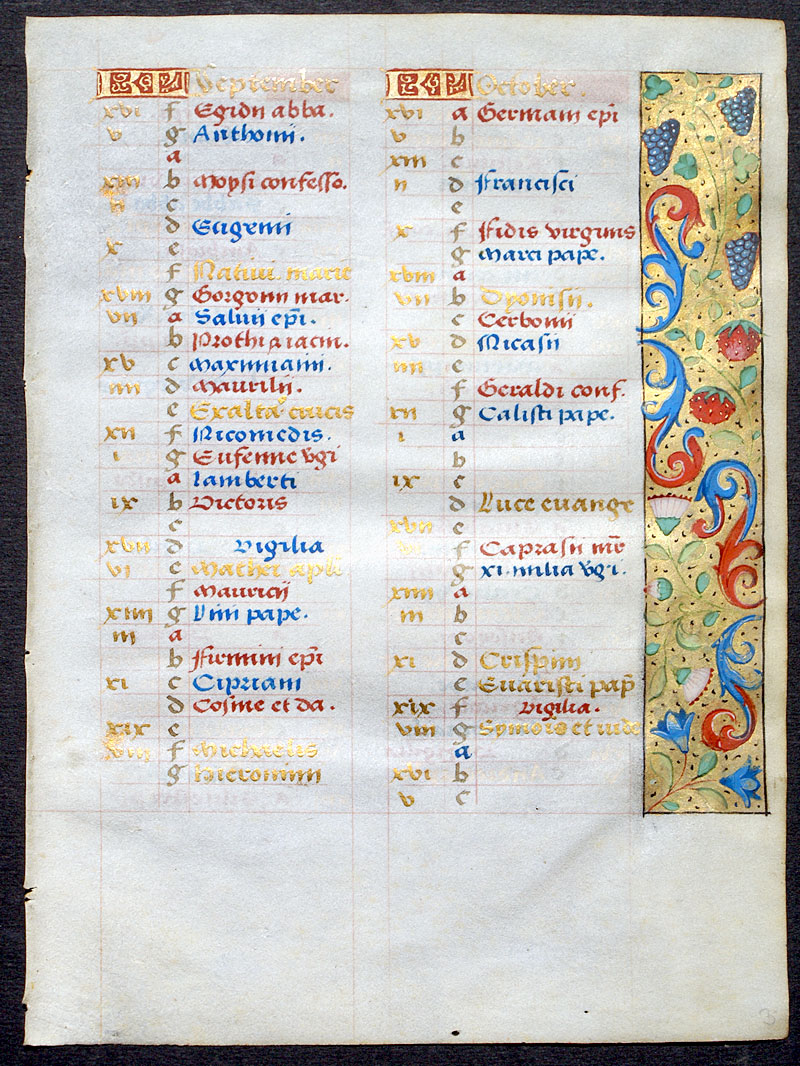 KL September
xvi f Egidii abba.
v g Anthonii.
a
xiii b Moysi confesso.
ii c
d Eugenii
x e
f Nativi. marie
xviii g Gorgonii mar.
vii a Salvii epi.
b Prothi & iacin.
xv c Maximiani.
iiii d Maurilii.
e Exalta. crucis
xii f Nicomedis.
i g Eufemie vgi
a Lamberti
ix b Victoris
c
xvii d Vigilia
vi e Mathei aple
f Mauricii
xiiii g Lini pape.
iii a
b Firmini epi
xi c Cipriani
d Cosme et da.
xix e
viii f Michaelis
g Hieronimi
KL October.
xvi a Germani epi
v b
xiii c
ii d Francisci
e
x f Fidis virginis
g Marci pape.
xviii a
vii b Dyonisii.
c Cerbonii
xv d Nicasii
iiii e
f Geraldi conf.
xii g Calisti pape.
i a
b
ix c
d Luce euange
xvii e
vi f Caprasii mr
g xi. milia vgi.
xiiii a
iii b
c
xi d Crispini
e Euaristi pap
xix f Vigilia.
viii g Symois et iude
a
xvi b
v c